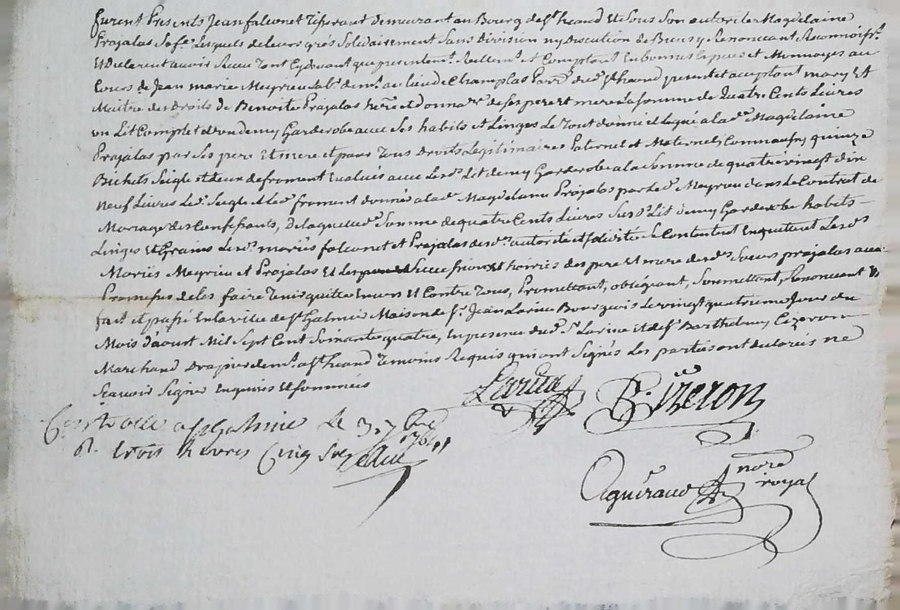 furent presents Jean falconet Tisserant demeurant au Bourg de st heand Et sous son autorité Magdelaine
Prajalas sa fe. Lesquels de leurs grés solidairement sans division ny discution de Biens y Renoncant Reconnoisst.
Et Declarent avoir Receu tout Cydevant que presentemt. Réellemt. et Comptant En bonnes Especes et Monnoyes au
Cours de Jean marie Meyrieu labr. demt. au lieu de Champlas parr. dud. st. heand present et aceptant mary Et
Maitre des Droits de Benoite Prajalas herre. et donnatre. de ses pere et mere la somme de Quatre Cents Livres
un Lit Complet et d'un demy Garderobe avec ses habits et Linges Le Tout donné et légué a lad. Magdelaine
Prajalas par ses pere Et mere et pour tous Droits Légitimaires Paternel et Maternels Comm aussy quinze
Bichets seigle et deux de froment Evalués avec Led. Lit demy Garderobe a la somme de quatre vingt dix
Neuf Livres Led. seigle et led. froment donnés a lad. Magdelaine Prajalas par led. Meyrieu dans le Contrat de
Mariage des Confessants, De laquelle d. somme de quatre Cents Livres susd. Lit demy Garderobe habits
Linges Et Grains Lesd. mariés falconet et Prajalas de sd. autorité et se Contentent En quittent Lesd.
Mariés Meyrieu et Prajalas Et Les succession et hoiries des pere et mere desd. soeurs prajalas avec
Promesses de les faire Tenir quitte Envers Et Contre Tous, Promettant, obligeant, Soumettant, Renoncant &
fait et passé En la ville de st Galmier Maison de sr. Jean Larüe Bourgeois le vingt quatrieme Jour du
Mois d'aoust Mil sept Cent soixante quatre, En presence dud. sr. Larüe et de sr. Barthelemy Cizeron
Marchand Drapier demt. a st. heand Temoins Requis qui ont signés Les parties ont declarés ne
sçavoir signer Enquis et sommées
Larüe
B. Cizeron
Conterollé a st galmier le 3. 7bre 1764
R. trois livres Cinq sols
Aguiraud nore
royal